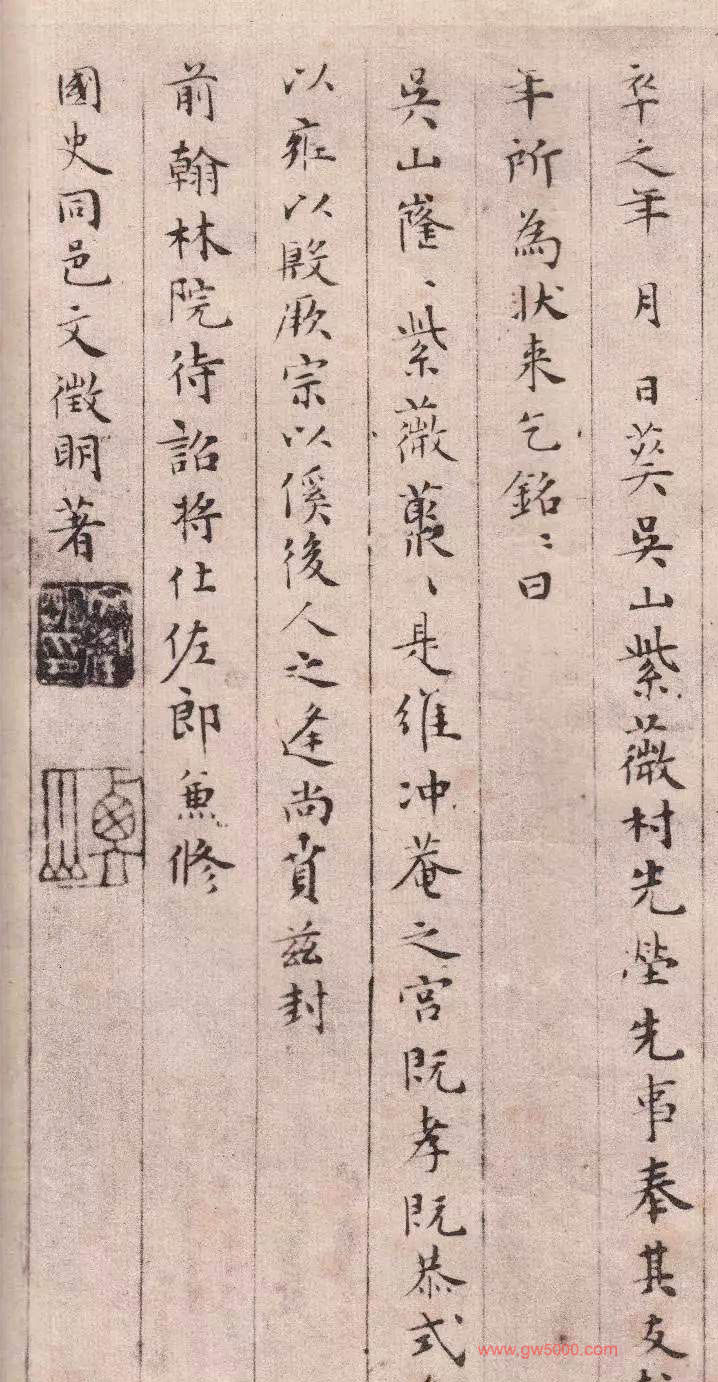 卒之年 月 日葬吳山紫薇村先塋先事奉其友
年所為狀來乞銘〻曰
吳山崔〻紫薇叢〻是維冲菴之宮既孝既恭式
以雍以殷厥宗以俟後人之逢尚賁茲封
前翰林院待詔將仕佐郎兼修
國史同邑文徵明著
www.gw5000.com